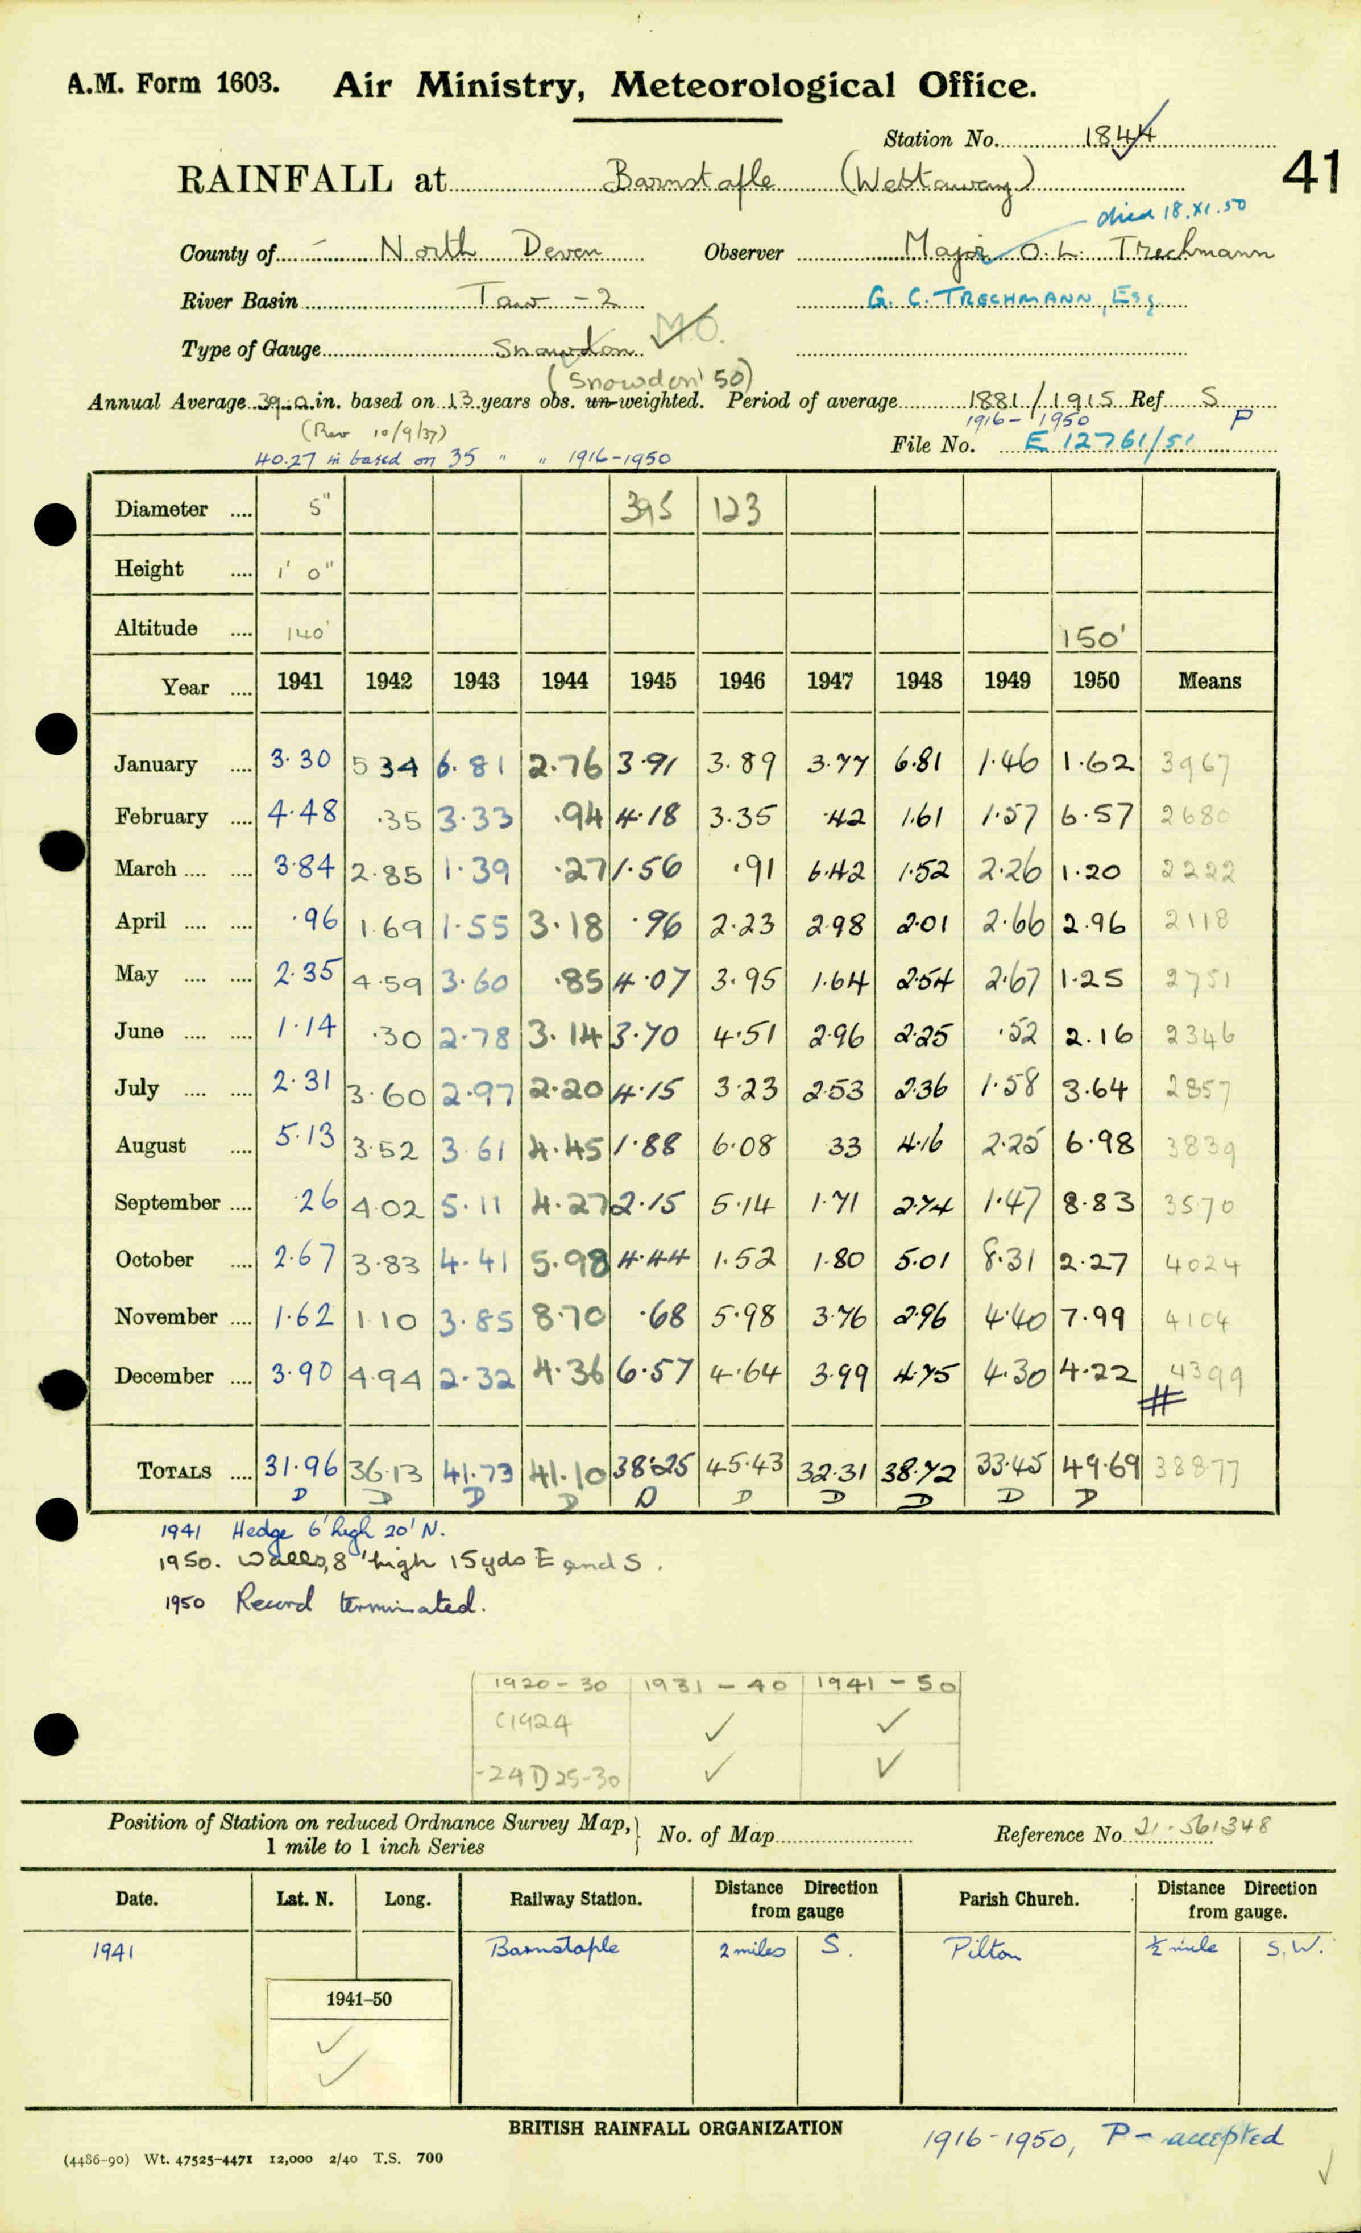 A.M. Form 1603. Air Ministry, Meteorological Office.
Station No. 1844
41
RAINFALL at Barnstaple (Westaway)
died 18.XI.50
County of North Devon Observer Major O. L. Trechmann
River Basin Taw - 2 G. C. TRECHMANN, Esq
Type of Gauge Snowdon M.O.
(Snowdon '50)
Annual Average 39.0 in. based on 13 years obs. un-weighted. Period of average 1881/1915 Ref S
(Rev 10/9/37) 1916-1950 P
File No. E 12761/51
40.27 in based on 35 " " 1916-1950
Diameter .... 5" 395 123
Height .... 1' 0"
Altitude .... 140' 150'
Year .... 1941 1942 1943 1944 1945 1946 1947 1948 1949 1950 Means
January .... 3.30 5 34 6.81 2.76 3.91 3.89 3.77 6.81 1.46 1.62 3967
February .... 4.48 .35 3.33 .94 4.18 3.35 .42 1.61 1.57 6.57 2680
March .... .... 3.84 2.85 1.39 .27 1.56 .91 6.42 1.52 2.26 1.20 2222
April .... .... .96 1.69 1.55 3.18 .96 2.23 2.98 2.01 2.66 2.96 2118
May .... .... 2.35 4.59 3.60 .85 4.07 3.95 1.64 2.54 2.67 1.25 2751
June .... .... 1.14 .30 2.78 3.14 3.70 4.51 2.96 2.25 .52 2.16 2346
July .... .... 2.31 3.60 2.97 2.20 4.15 3.23 2.53 2.36 1.58 3.64 2857
August .... 5.13 3.52 3.61 4.45 1.88 6.08 33 4.16 2.25 6.98 3839
September .... .26 4.02 5.11 4.27 2.15 5.14 1.71 2.74 1.47 8.83 3570
October .... 2.67 3.83 4.41 5.98 4.44 1.52 1.80 5.01 8.31 2.27 4024
November .... 1.62 1.10 3.85 8.70 .68 5.98 3.76 2.96 4.40 7.99 4104
December .... 3.90 4.94 2.32 4.36 6.57 4.64 3.99 4.75 4.30 4.22 4399
#
TOTALS .... 31.96 36.13 41.73 41.10 38.25 45.43 32.31 38.72 33.45 49.69 38877
D D D D D D D D D D
1941 Hedge 6' high 20' N.
1950. Walls, 8' high 15 yds E and S.
1950 Record terminated.
1920-30 1931-40 1941-50
C1924 ✓ ✓
-24 D 25-30 ✓ ✓
Position of Station on reduced Ordnance Survey Map, 1 mile to 1 inch Series } No. of Map Reference No. 21.561348
Date. Lat. N. Long. Railway Station. Distance from gauge Direction Parish Church. Distance Direction from gauge.
1941 Barnstaple 2 miles S. Pilton ½ mile S.W.
1941-50
✓
✓
BRITISH RAINFALL ORGANIZATION
1916-1950, P - accepted
(4486-90) Wt. 47525-4471 12,000 2/40 T.S. 700